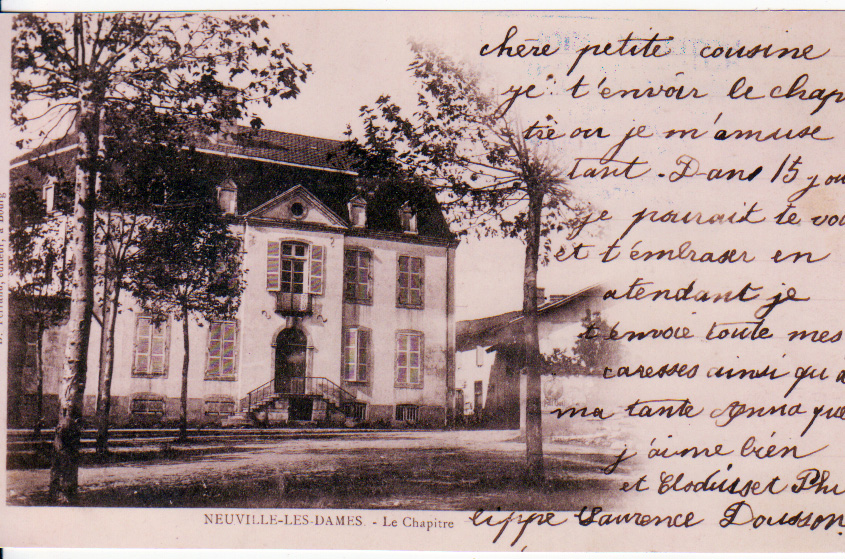 chere petite cousine
je t'envoir le chap
tre ou je m'amuse
tant - Dans 15 jou
je pourait te voi
et t'embraser en
atendant je
t'envoie toute mes
caresses ainsi qu'a
ma tante Anna que
j'aime bien
et Phi
lippe Laurence
NEUVILLE-LES-DAMES. - Le Chapitre
éditeur, à Bourg